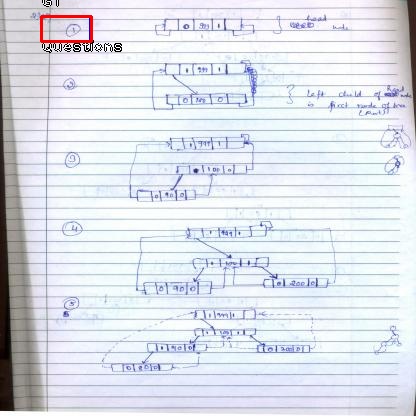 GT
1
Questions
0 999 1
head
node
2
1 999 1
0 100 0
Left child of head node
is first node of tree
(Root)
3
1 999 1
100 0
0 90 0
4
1 999 1
1 100 1
0 90 0
0 200 0
5
1 999 1
1 100 1
1 90 0
0 200 0
0 80 0